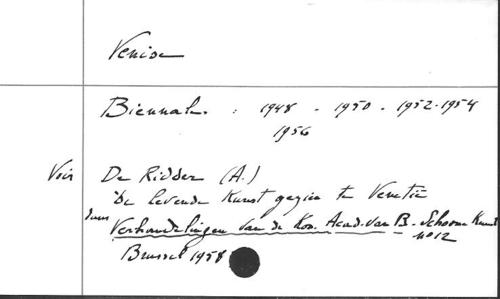 Venise
Biennale : 1948 - 1950 - 1952 - 1954
1956
Voir De Ridder (A.)
De levende Kunst gezien te Venetië
dans Verhandelingen van de Kon. Acad. van B. Schoone Kunst
n° 12
Brussel 1958